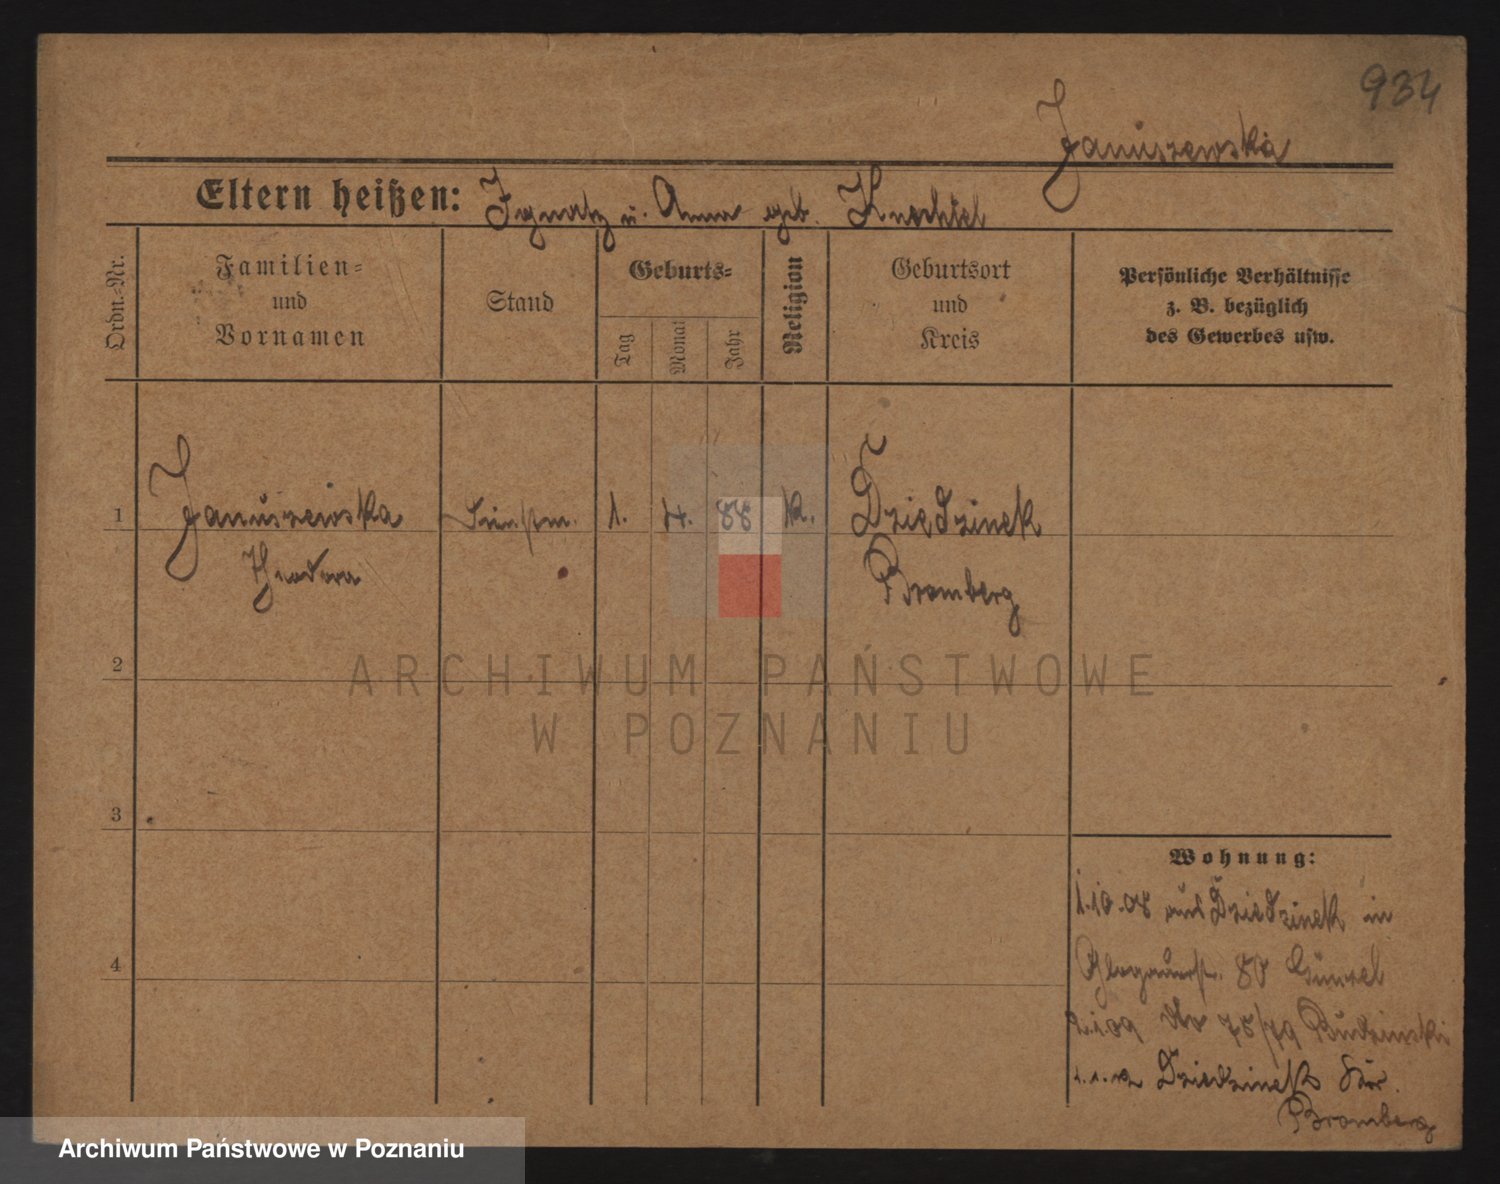 934
Januszewska
Eltern heißen: Ignatz u. Anna geb.
Ordn.-Nr.
Familien-
und
Vornamen
Stand
Geburts-
Tag
Monat
Jahr
Religion
Geburtsort
und
Kreis
Persönliche Verhältnisse
z. B. bezüglich
des Gewerbes usw.
1
Januszewska 1. 4. 88 k. Dziedzinek
Theodora Bromberg
2
ARCHIWUM PAŃSTWOWE
W POZNANIU
3
Wohnung:
1.10.08 aus Dziedzinek in
Glogauerstr. 80
4
1.09 do 78/79 Budzinski
Dziedzinek Kr.
Bromberg
Archiwum Państwowe w Poznaniu